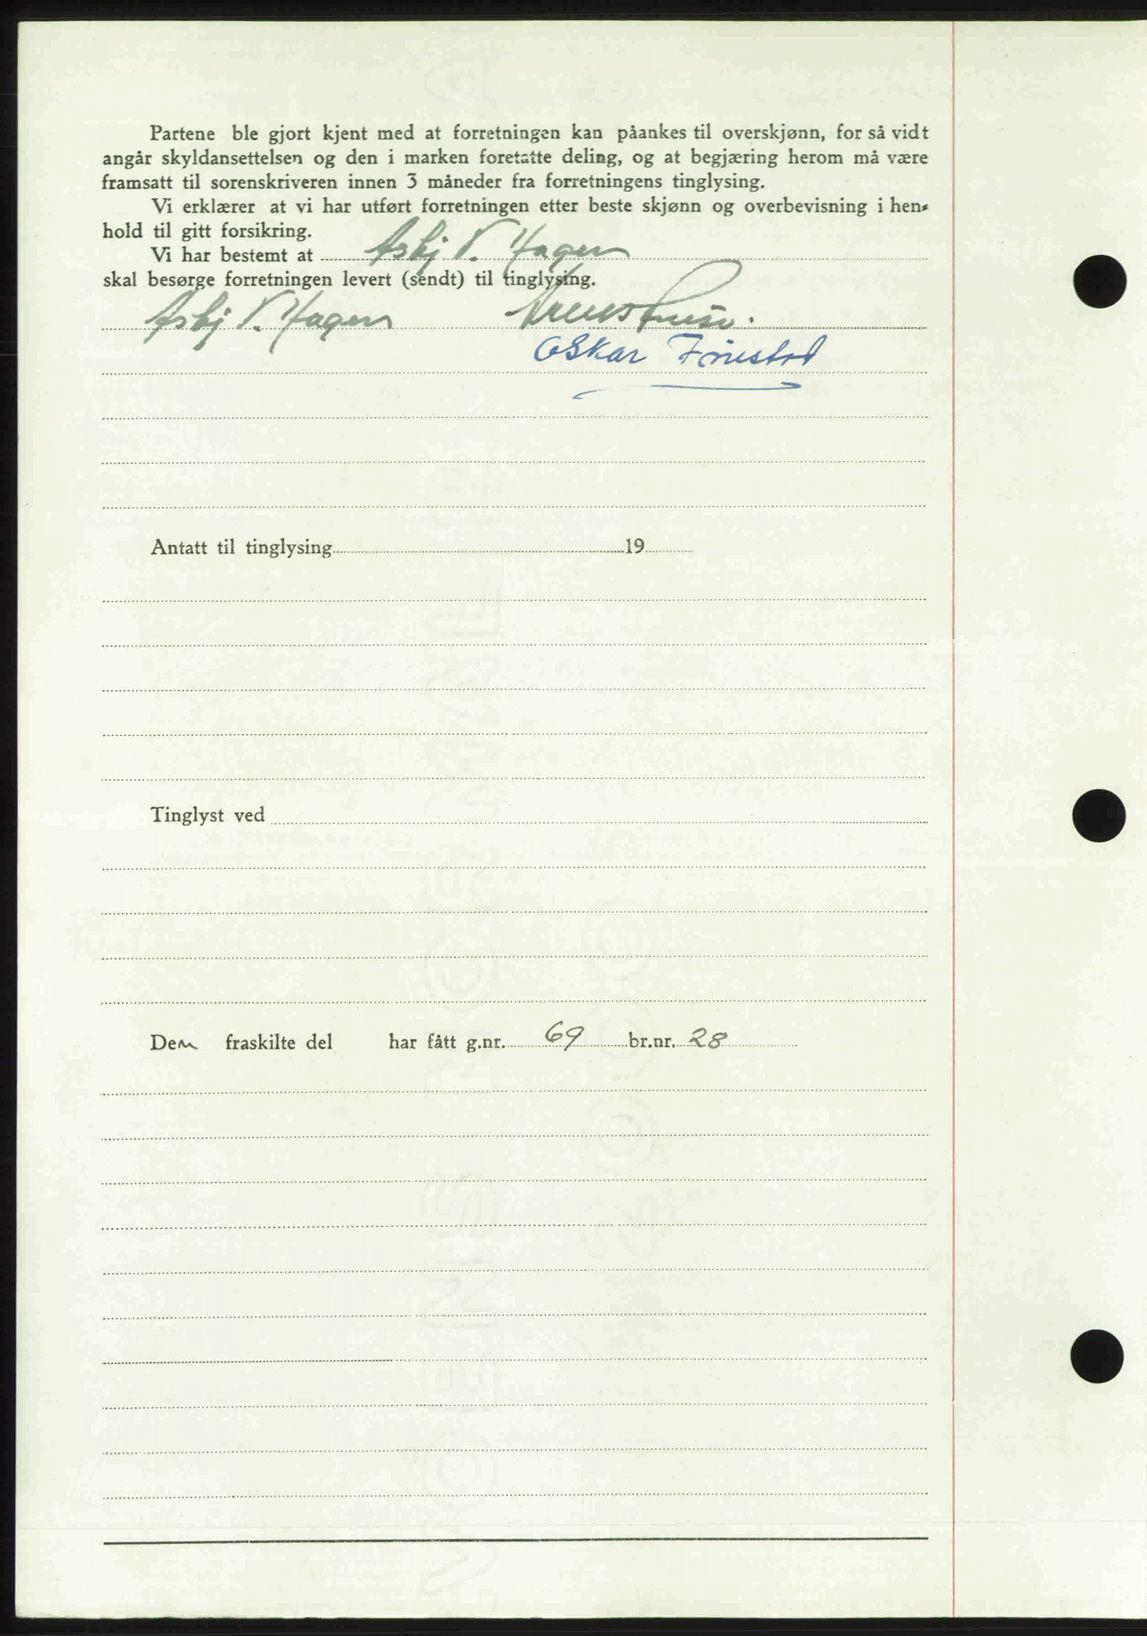 Partene ble gjort kjent med at forretningen kan påankes til overskjønn, for så vidt
angår skyldansettelsen og den i marken foretatte deling, og at begjæring herom må være
framsatt til sorenskriveren innen 3 måneder fra forretningens tinglysing.
Vi erklærer at vi har utført forretningen etter beste skjønn og overbevisning i hen-
hold til gitt forsikring.
Vi har bestemt at Asbj V. Hagen
skal besørge forretningen levert (sendt) til tinglysing.
Asbj V. Hagen
Oskar
Antatt til tinglysing 19
Tinglyst ved
Den fraskilte del har fått g.nr. 69 br.nr. 28